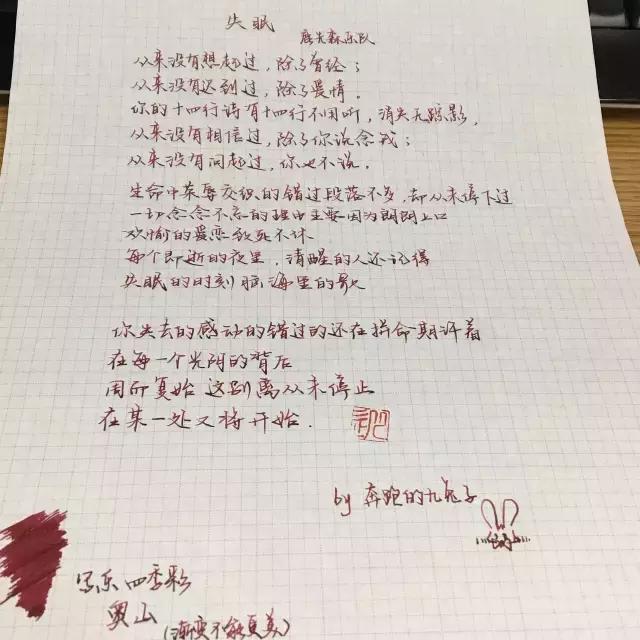 失眠
鹿先森乐队
从来没有想起过，除了曾经；
从来没有迟到过，除了爱情。
你的十四行诗有十四行不同听，消失无踪影。
从来没有相信过，除了你说念我；
从来没有问起过，你也不说。
生命中荣辱交织的错过段落不多，却从未停下过
一切念念不忘的理由主要因为朗朗上口
欢愉的爱恋致死不休
每个即逝的夜里，清醒的人还记得
失眠的时刻脑海里的歌
你失去的感动的错过的还在拼命期许着
在每一个光阴的背后
周而复始 这别离从未停止
在某一处又将开始.
by 奔跑的九兔子
写乐四季彩
(渐变不能更美)